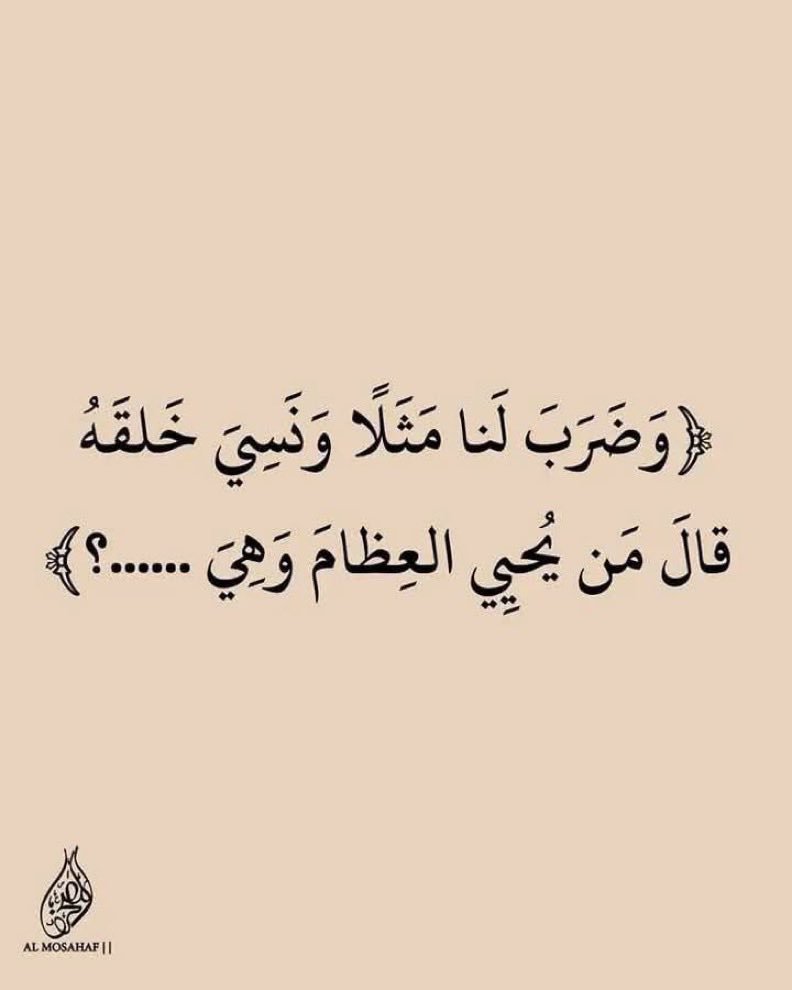 ﴿وَضَرَبَ لَنا مَثَلًا وَنَسِيَ خَلقَهُ
قالَ مَن يُحيِي العِظامَ وَهِيَ ......؟﴾
AL MOSAHAF ||